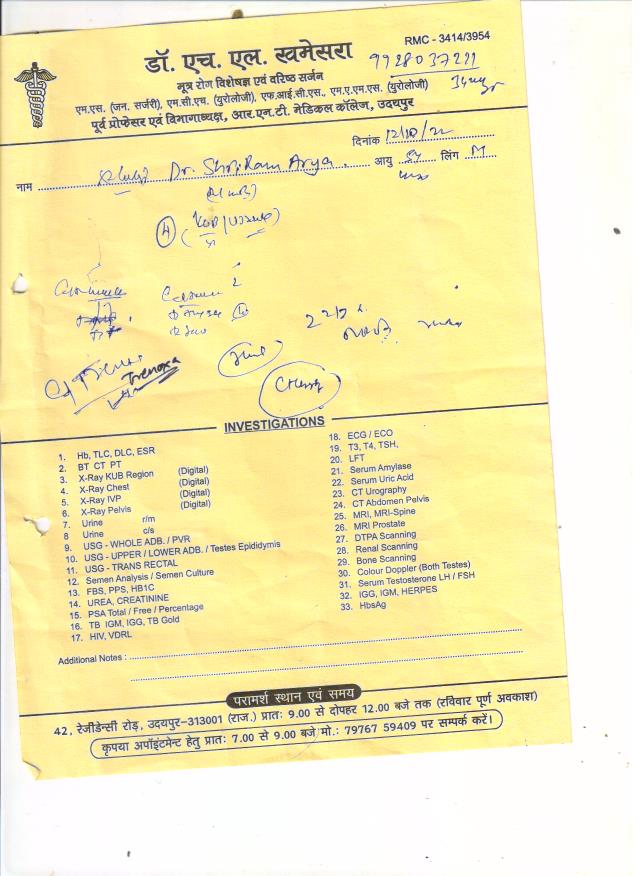 RMC - 3414/3954
डॉ. एच. एल. खमेसरा
9928037211
मूत्र रोग विशेषज्ञ एवं वरिष्ठ सर्जन
एम.एस. (जन. सर्जरी), एम.सी.एच. (यूरोलोजी), एफ.आई.सी.एस., एम.ए.एम.एस. (यूरोलोजी)
पूर्व प्रोफेसर एवं विभागाध्यक्ष, आर.एन.टी. मेडिकल कॉलेज, उदयपुर
दिनांक 12/10/22
नाम Dr. Shri Ram Arya आयु लिंग M
Trenoxa
INVESTIGATIONS
1. Hb, TLC, DLC, ESR
2. BT CT PT
3. X-Ray KUB Region (Digital)
4. X-Ray Chest (Digital)
5. X-Ray IVP (Digital)
6. X-Ray Pelvis (Digital)
7. Urine r/m
8 Urine c/s
9. USG - WHOLE ADB. / PVR
10. USG - UPPER / LOWER ADB. / Testes Epididymis
11. USG - TRANS RECTAL
12. Semen Analysis / Semen Culture
13. FBS, PPS, HB1C
14. UREA, CREATININE
15. PSA Total / Free / Percentage
16. TB IGM, IGG, TB Gold
17. HIV, VDRL
18. ECG / ECO
19. T3, T4, TSH,
20. LFT
21. Serum Amylase
22. Serum Uric Acid
23. CT Urography
24. CT Abdomen Pelvis
25. MRI, MRI-Spine
26. MRI Prostate
27. DTPA Scanning
28. Renal Scanning
29. Bone Scanning
30. Colour Doppler (Both Testes)
31. Serum Testosterone LH / FSH
32. IGG, IGM, HERPES
33. HbsAg
Additional Notes :
परामर्श स्थान एवं समय
42, रेजीडेन्सी रोड़, उदयपुर-313001 (राज.) प्रातः 9.00 से दोपहर 12.00 बजे तक (रविवार पूर्ण अवकाश)
कृपया अपॉइंटमेण्ट हेतु प्रातः 7.00 से 9.00 बजे मो.: 79767 59409 पर सम्पर्क करें।